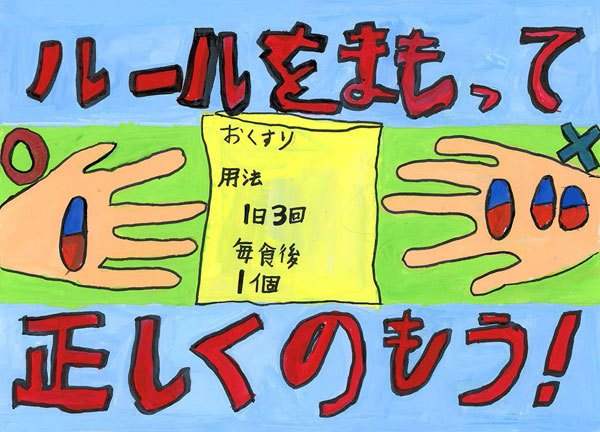 ルールをまもって
おくすり
用法
1日3回
毎食後
1個
正しくのもう!